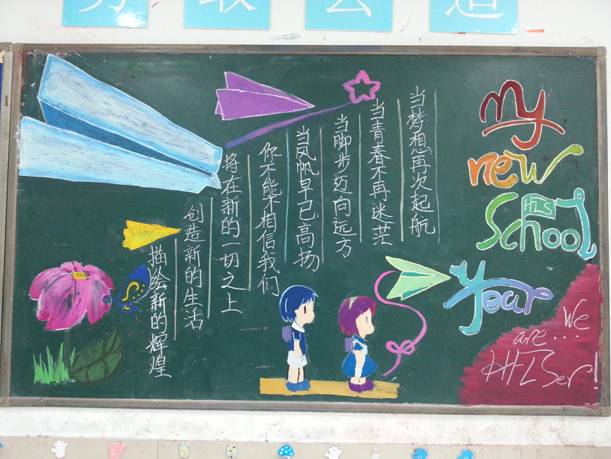 当梦想再次起航
当青春不再迷茫
当脚步迈向远方
当风帆早已高扬
你不能不相信我们
将在新的一切之上
创造新的生活
描绘新的辉煌
My
new
School
Year
We
are...